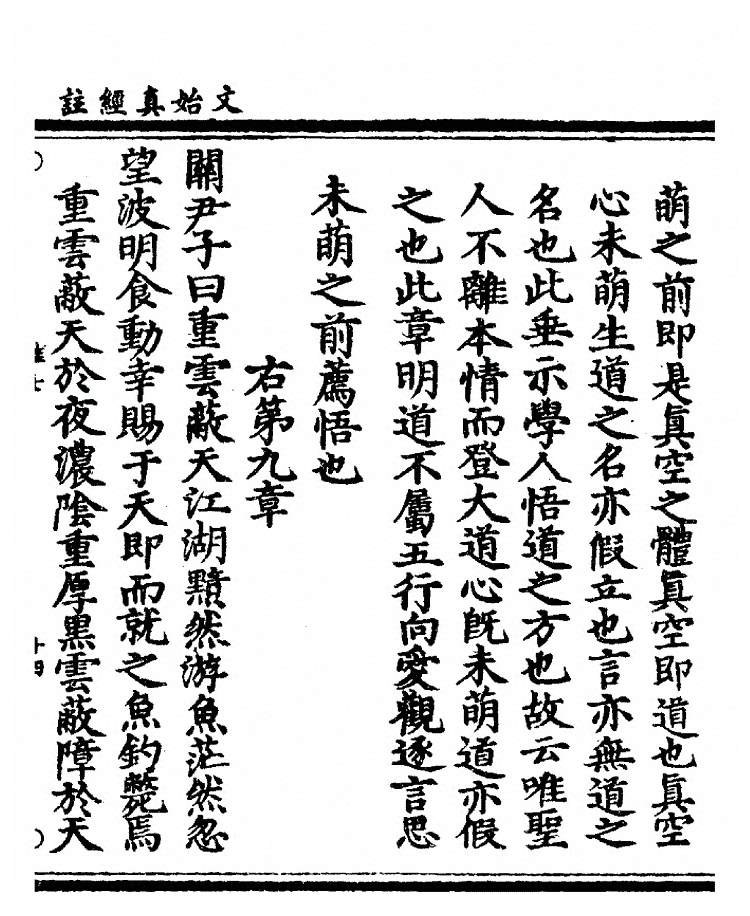 文始真經註
萌之前即是眞空之體眞空即道也眞空
心未萌生道之名亦假立也言亦無道之
名也此垂示學人悟道之方也故云唯聖
人不離本情而登大道心旣未萌道亦假
之也此章明道不屬五行向愛觀逐言思
未萌之前薦悟也
右第九章
關尹子曰重雲蔽天江湖黯然游魚茫然忽
望波明食動幸賜于天即而就之魚釣斃焉
重雲蔽天於夜濃陰重厚黑雲蔽障於天
十四